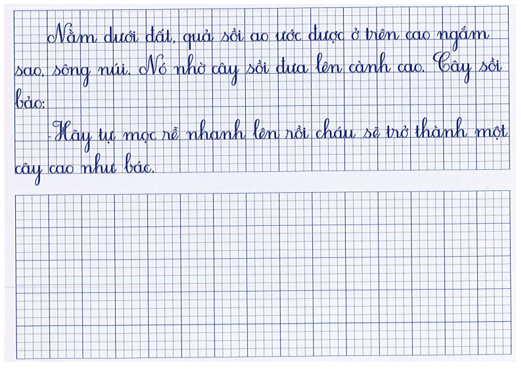 Nằm dưới đất, quả sồi ao ước được ở trên cao ngắm
sao, sông núi. Nó nhờ cây sồi đưa lên cành cao. Cây sồi
bảo:
- Hãy tự mọc rễ nhanh lên rồi cháu sẽ trở thành một
cây cao như bác.